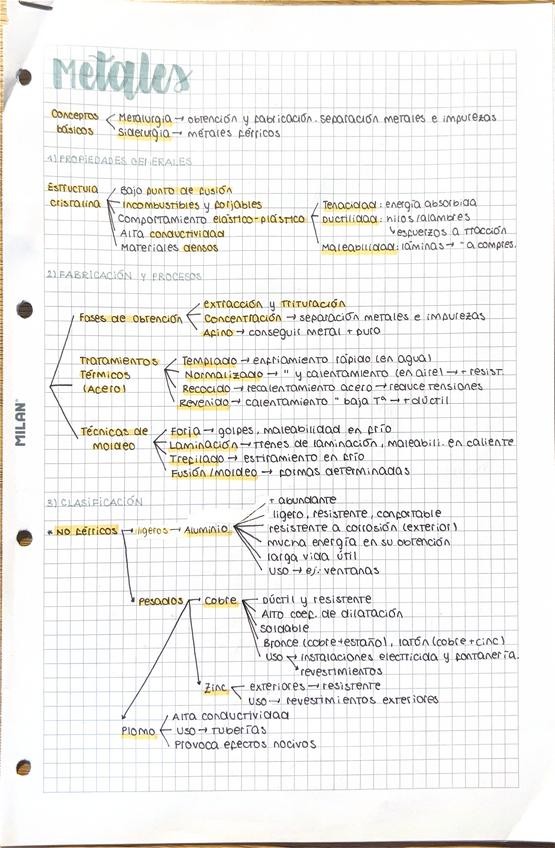 Metales
Conceptos básicos
Metalurgia → obtención y fabricación. separación metales e impurezas
Siderurgia → metales férricos
1) PROPIEDADES GENERALES
Estructura cristalina
Bajo punto de fusión
Incombustibles y forjables
Comportamiento elástico-plástico
Alta conductividad
Materiales densos
Tenacidad: energía absorbida
Ductilidad: hilos/alambres
↳ esfuerzos a tracción
Maleabilidad: láminas → " a compres.
2) FABRICACIÓN Y PROCESOS
Fases de obtención
extracción y trituración
Concentración → separación metales e impurezas
Afino → conseguir metal + puro
Tratamientos Térmicos (Acero)
Templado → enfriamiento rápido (en agua)
Normalizado → " y calentamiento (en aire) → + resist.
Recocido → recalentamiento acero → reduce tensiones
Revenido → calentamiento " baja Tª → + dúctil
Técnicas de moldeo
Forja → golpes, maleabilidad en frío
Laminación → trenes de laminación, maleabili. en caliente
Trefilado → estiramiento en frío
Fusión/moldeo → formas determinadas
3) CLASIFICACIÓN
* NO férricos → ligeros → Aluminio
+ abundante
ligero, resistente, confortable
resistente a corrosión (exterior)
mucha energía en su obtención
larga vida útil
USO → ej: ventanas
Pesados → Cobre
Dúctil y resistente
Alto coef. de dilatación
soldable
Bronce (cobre+estaño), latón (cobre+cinc)
USO → instalaciones electricidad y fontanería.
revestimientos
Zinc
exteriores → resistente
USO → revestimientos exteriores
Plomo
Alta conductividad
USO → tuberías
Provoca efectos nocivos
MILAN